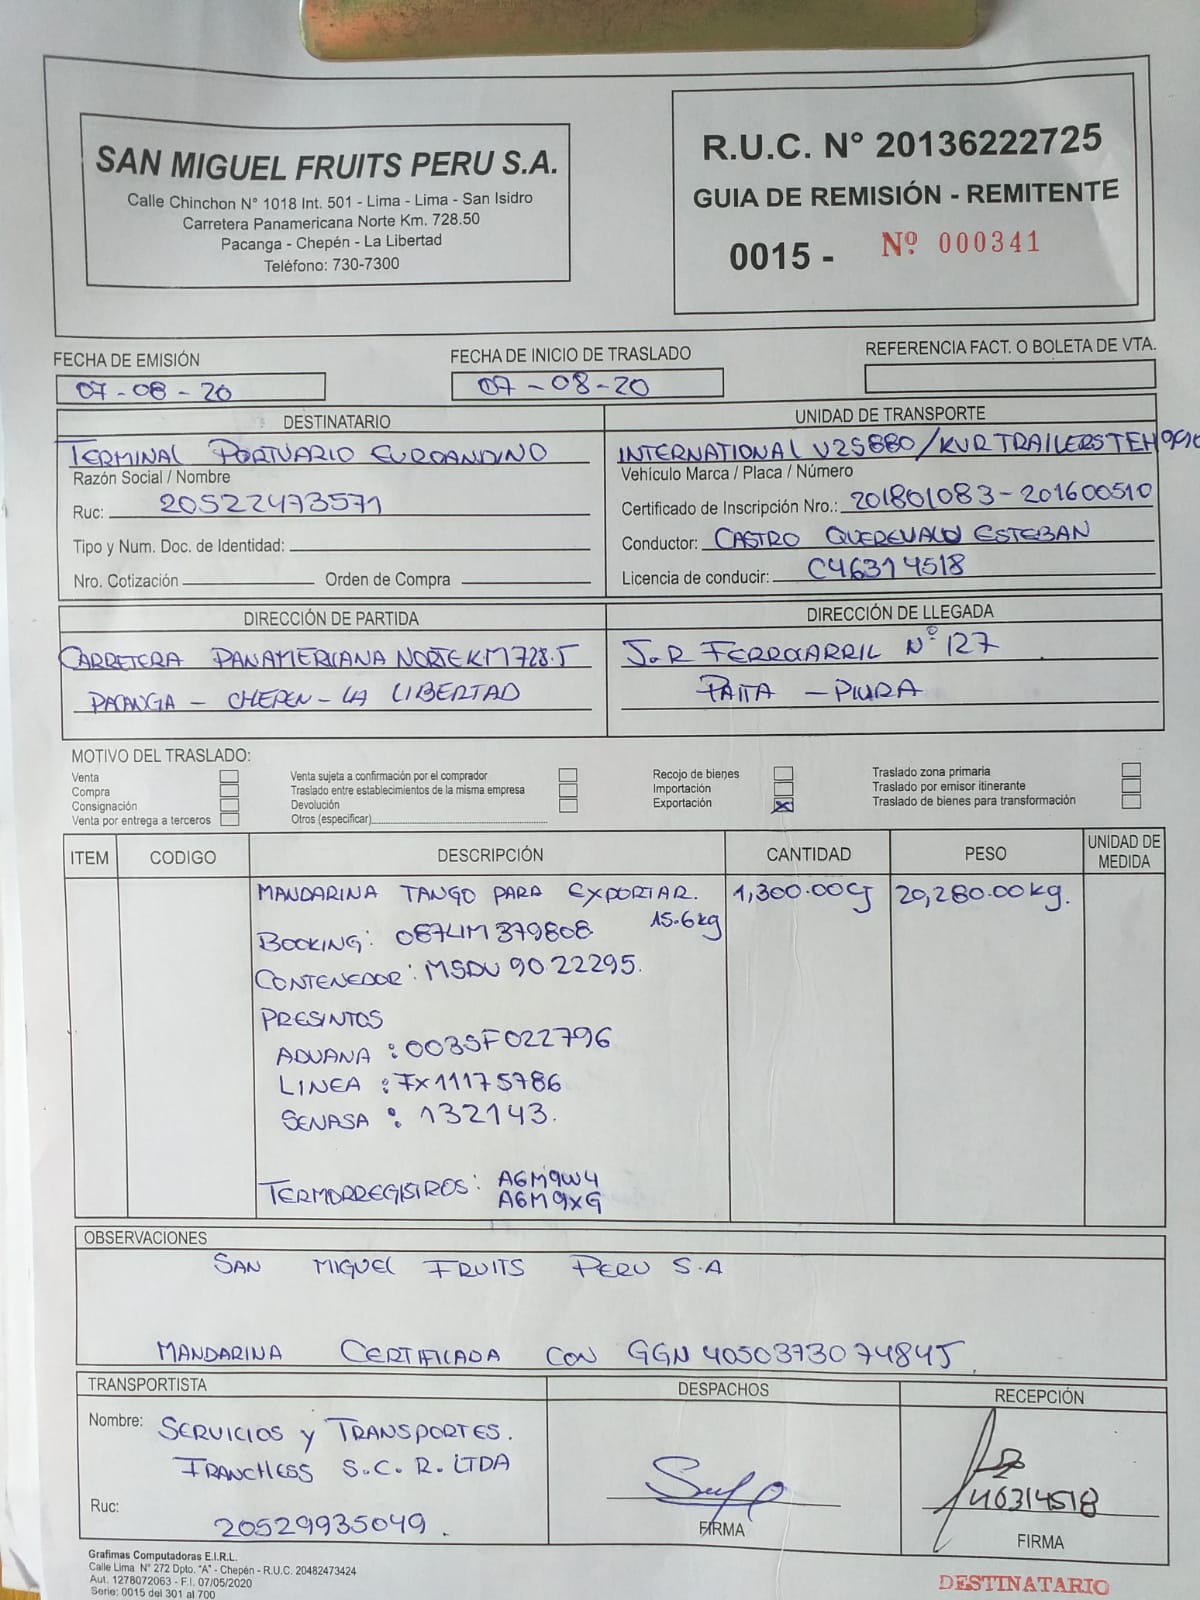 SAN MIGUEL FRUITS PERU S.A.
Calle Chinchon N° 1018 Int. 501 - Lima - Lima - San Isidro
Carretera Panamericana Norte Km. 728.50
Pacanga - Chepén - La Libertad
Teléfono: 730-7300
R.U.C. N° 20136222725
GUIA DE REMISIÓN - REMITENTE
0015 - Nº 000341
FECHA DE EMISIÓN
07-08-20
FECHA DE INICIO DE TRASLADO
07-08-20
REFERENCIA FACT. O BOLETA DE VTA.
DESTINATARIO
TERMINAL PORTUARIO EUROANDINO
Razón Social / Nombre
Ruc: 20522473571
Tipo y Num. Doc. de Identidad:
Nro. Cotización Orden de Compra
UNIDAD DE TRANSPORTE
INTERNATIONAL V2S880/KVR TRAILERS
Vehículo Marca / Placa / Número
Certificado de Inscripción Nro.: 201801083-201600510
Conductor: CASTRO ESTEBAN
Licencia de conducir: C46314518
DIRECCIÓN DE PARTIDA
CARRETERA PANAMERICANA NORTE KM 728.5
PACANGA - CHEPEN - LA LIBERTAD
DIRECCIÓN DE LLEGADA
J.R FERROARRIL N° 127
PAITA - PIURA
MOTIVO DEL TRASLADO:
Venta
Compra
Consignación
Venta por entrega a terceros
Venta sujeta a confirmación por el comprador
Traslado entre establecimientos de la misma empresa
Devolución
Otros (especificar)
Recojo de bienes
Importación
Exportación X
Traslado zona primaria
Traslado por emisor itinerante
Traslado de bienes para transformación
ITEM CODIGO DESCRIPCIÓN CANTIDAD PESO UNIDAD DE MEDIDA
MANDARINA TANGO PARA EXPORTAR. 1,300.00cj 20,280.00kg.
15.6kg
BOOKING: 087LIM379808
CONTENEDOR: MSDU 9022295.
PRESINTOS
ADUANA : 003SF022796
LINEA : FX11175786
SENASA : 132143.
TERMORREGISTROS: A6M9W4
A6M9XG
OBSERVACIONES
SAN MIGUEL FRUITS PERU S.A
MANDARINA CERTIFICADA CON GGN 4050373074845
TRANSPORTISTA
Nombre: SERVICIOS y TRANSPORTES.
FRANCHESS S.C.R. LTDA
Ruc: 20529935049.
DESPACHOS
FIRMA
RECEPCIÓN
46314518
FIRMA
Grafimas Computadoras E.I.R.L.
Calle Lima N° 272 Dpto. "A" - Chepén - R.U.C. 20482473424
Aut. 1278072063 - F.I. 07/05/2020
Serie: 0015 del 301 al 700
DESTINATARIO